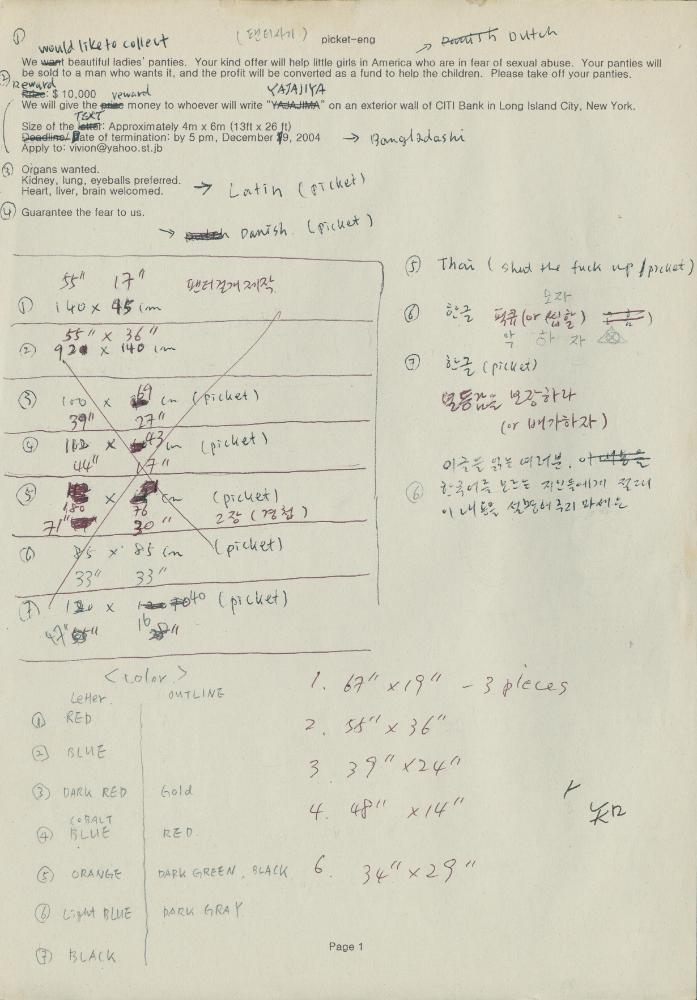 ① would like to collect (팬티사기) picket-eng → Danish Dutch
We want beautiful ladies' panties. Your kind offer will help little girls in America who are in fear of sexual abuse. Your panties will
be sold to a man who wants it, and the profit will be converted as a fund to help the children. Please take off your panties.
② Reward
Prize: $ 10,000 reward YATAJIYA
We will give the prize money to whoever will write "YAJAJIMA" on an exterior wall of CITI Bank in Long Island City, New York.
TEXT
Size of the letter: Approximately 4m x 6m (13ft x 26 ft)
Deadline/ Date of termination: by 5 pm, December 19, 2004 → Bangladashi
Apply to: vivion@yahoo.st.jp
③ Organs wanted.
Kidney, lung, eyeballs preferred.
Heart, liver, brain welcomed. → Latin (picket)
④ Guarantee the fear to us.
→ Danish. (picket)
55" 17" 팬티걸개제작
① 140 x 45 cm
55" x 36"
② 92 x 140 cm
③ 100 x 69 cm (picket)
39" 27"
④ 112 x 43 cm (picket)
44" 17"
⑤ x cm (picket)
180 76
71" 30" 2장 (경첩)
⑥ 85 x 85 cm (picket)
33" 33"
⑦ 120 x 40 (picket)
47" 16"
⑤ Thai (shut the fuck up / picket)
모자
⑥ 한글 퍽큐 (or 씹할)
악 하 자
⑦ 한글 (picket)
열등감을 보장하라
(or 배가하자)
이글을 읽는 여러분, 이 내용을
⑥ 한국어를 모르는 지인들에게 절대
이 내용을 설명해주지 마세요
<color>
Letter. OUTLINE
① RED
② BLUE
③ DARK RED Gold
COBALT
④ BLUE RED.
⑤ ORANGE DARK GREEN, BLACK
⑥ Light BLUE DARK GRAY
⑦ BLACK
1. 67" x 19" - 3 pieces
2. 55" x 36"
3 39" x 24"
4. 48" x 14"
6. 34" x 29"
Page 1